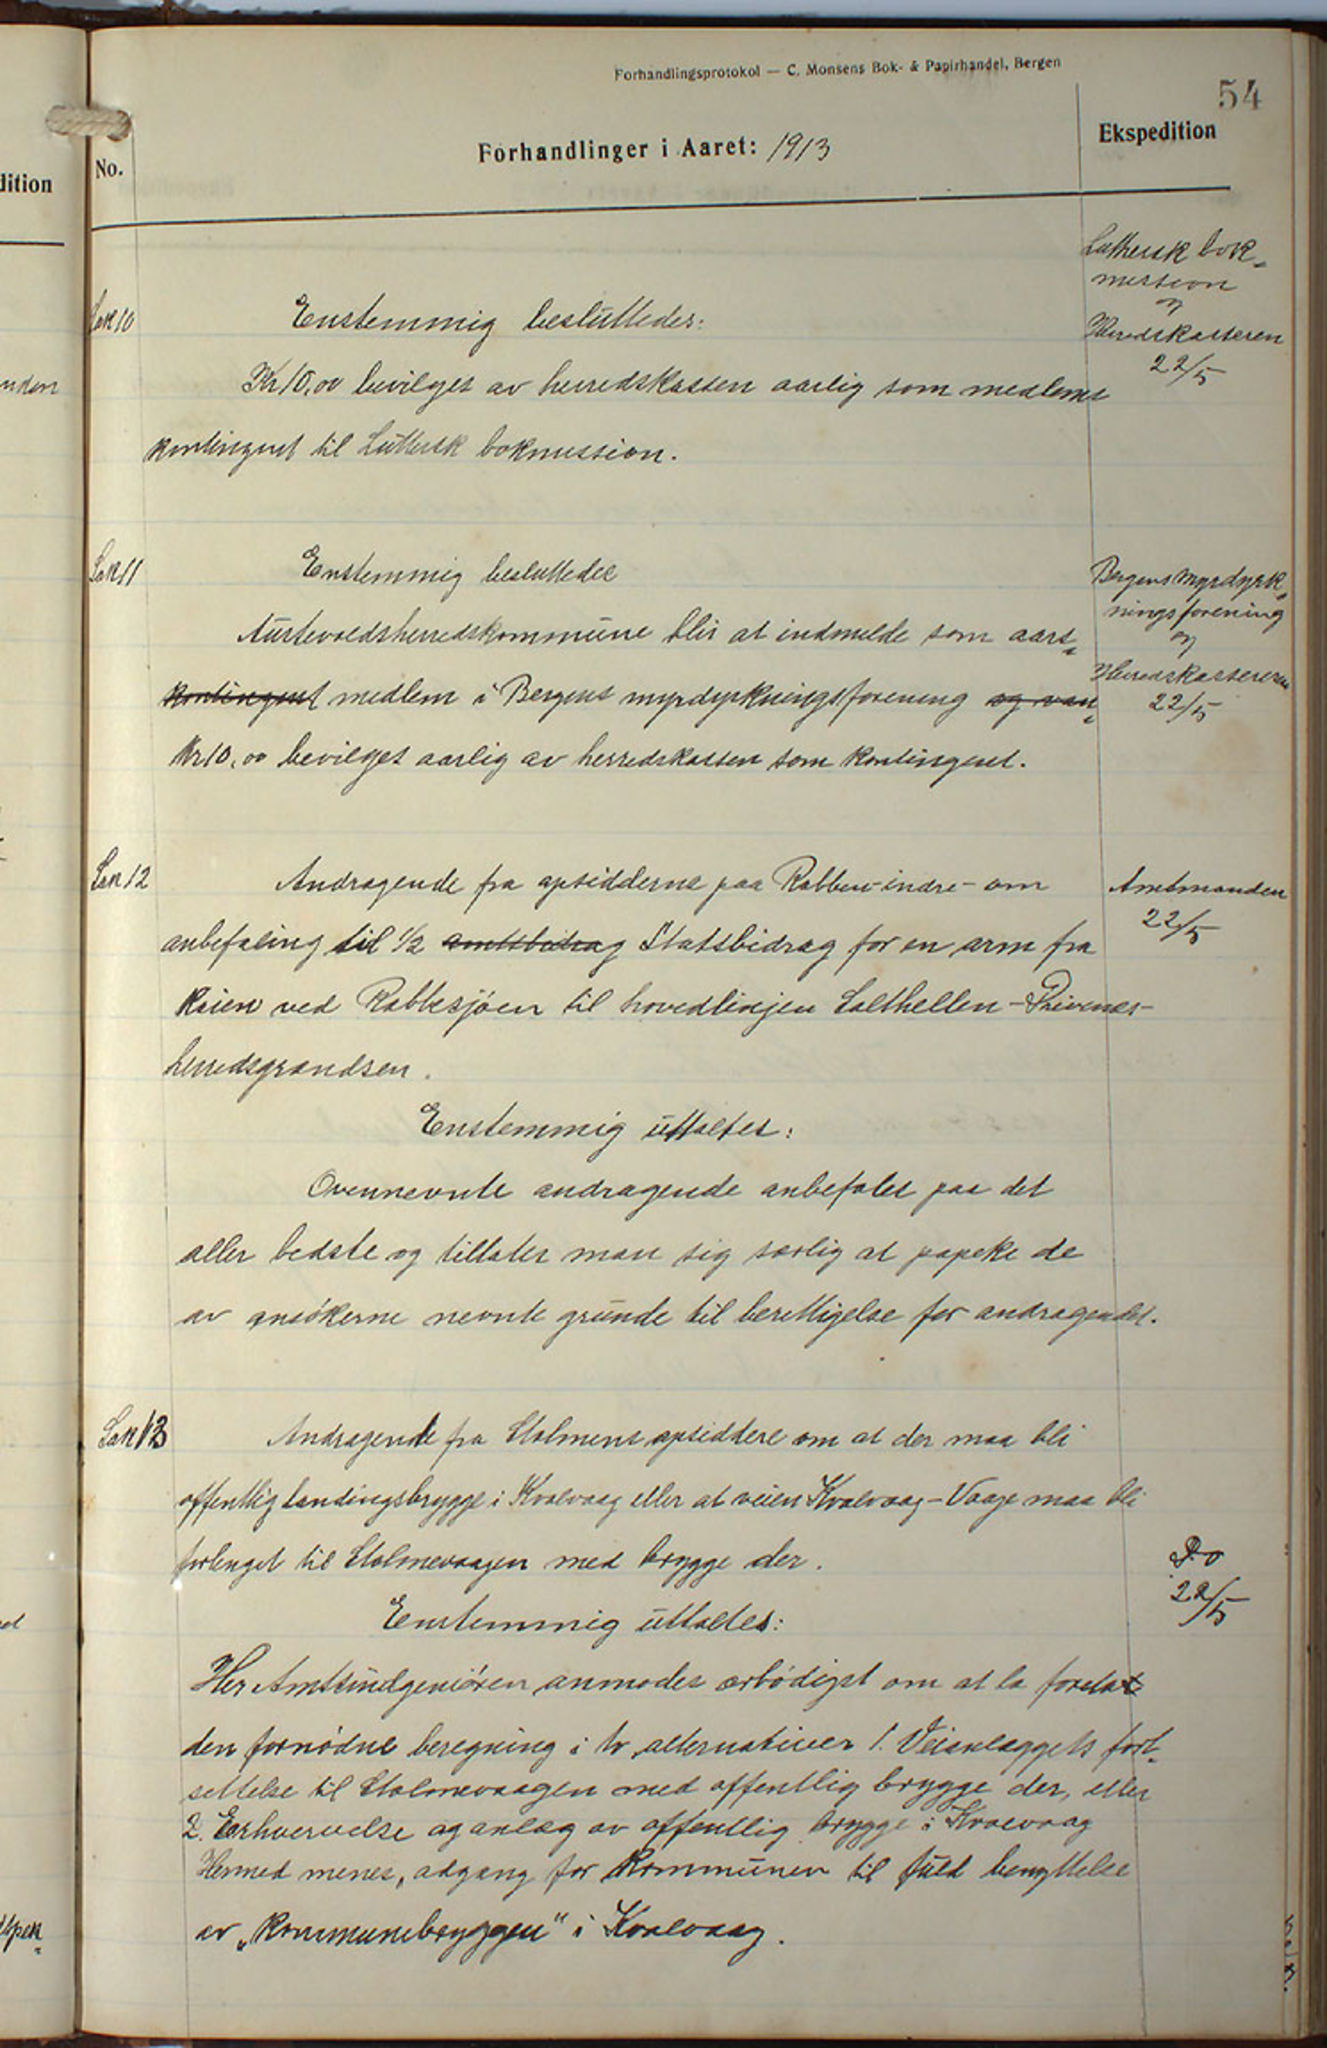 Forhandlingsprotokol — C. Monsens Bok- & Papirhandel, Bergen
54
dition
No.
Forhandlinger i Aaret: 1913
Ekspedition
Luthersk bok-
mission
og
Herredskasseren
22/5
Sak 10
Enstemmig besluttedes:
Kr 10,00 bevilges av herredskassen aarlig som medlems
kontingent til Luttersk bokmission.
Sak 11
Enstemmig besluttedes
Austevoldsherredskommune blir at indmelde som aars-
kontingent medlem i Bergens myrdyrkningsforening og van-
Kr 10,00 bevilges aarlig av herredskassen som kontingent.
Bergens Myrdyrk-
ningsforening
og
Herredskasseren
22/5
Sak 12
Andragende fra opsidderne paa Rabben-indre- om
anbefaling til 1/2 amtsbidrag Statsbidrag for en arm fra
Kaien ved Rabbesjøen til hovedlinjen Salthellen -
herredsgrændsen.
Amtmanden
22/5
Enstemmig uttaltes:
Ovennevnte andragende anbefales paa det
aller bedste og tillater man sig særlig at papeke de
av ansökerne nevnte grunde til berettigelse for andragendet.
Sak 13
Andragende fra Stolmens opsiddere om at der maa bli
offentlig landingsbrygge i Kvalvaag eller at veien Kvalvaag - Vaage maa bli
forlenget til Stolmevaagen med brygge der.
Do
22/5
Enstemmig uttaltes:
Her Amtsindgeniören anmodes ærbödigst om at la foreta
den fornödne beregning i to alternativer 1. Veianlæggets fort-
settelse til Stolmevaagen med offentlig brygge der, eller
2. Erhvervelse og anlæg av offentlig brygge i Kvalvaag
Hermed menes, adgang for Kommunen til fuld benyttelse
av „Kommunebryggen" i Kvalvaag.